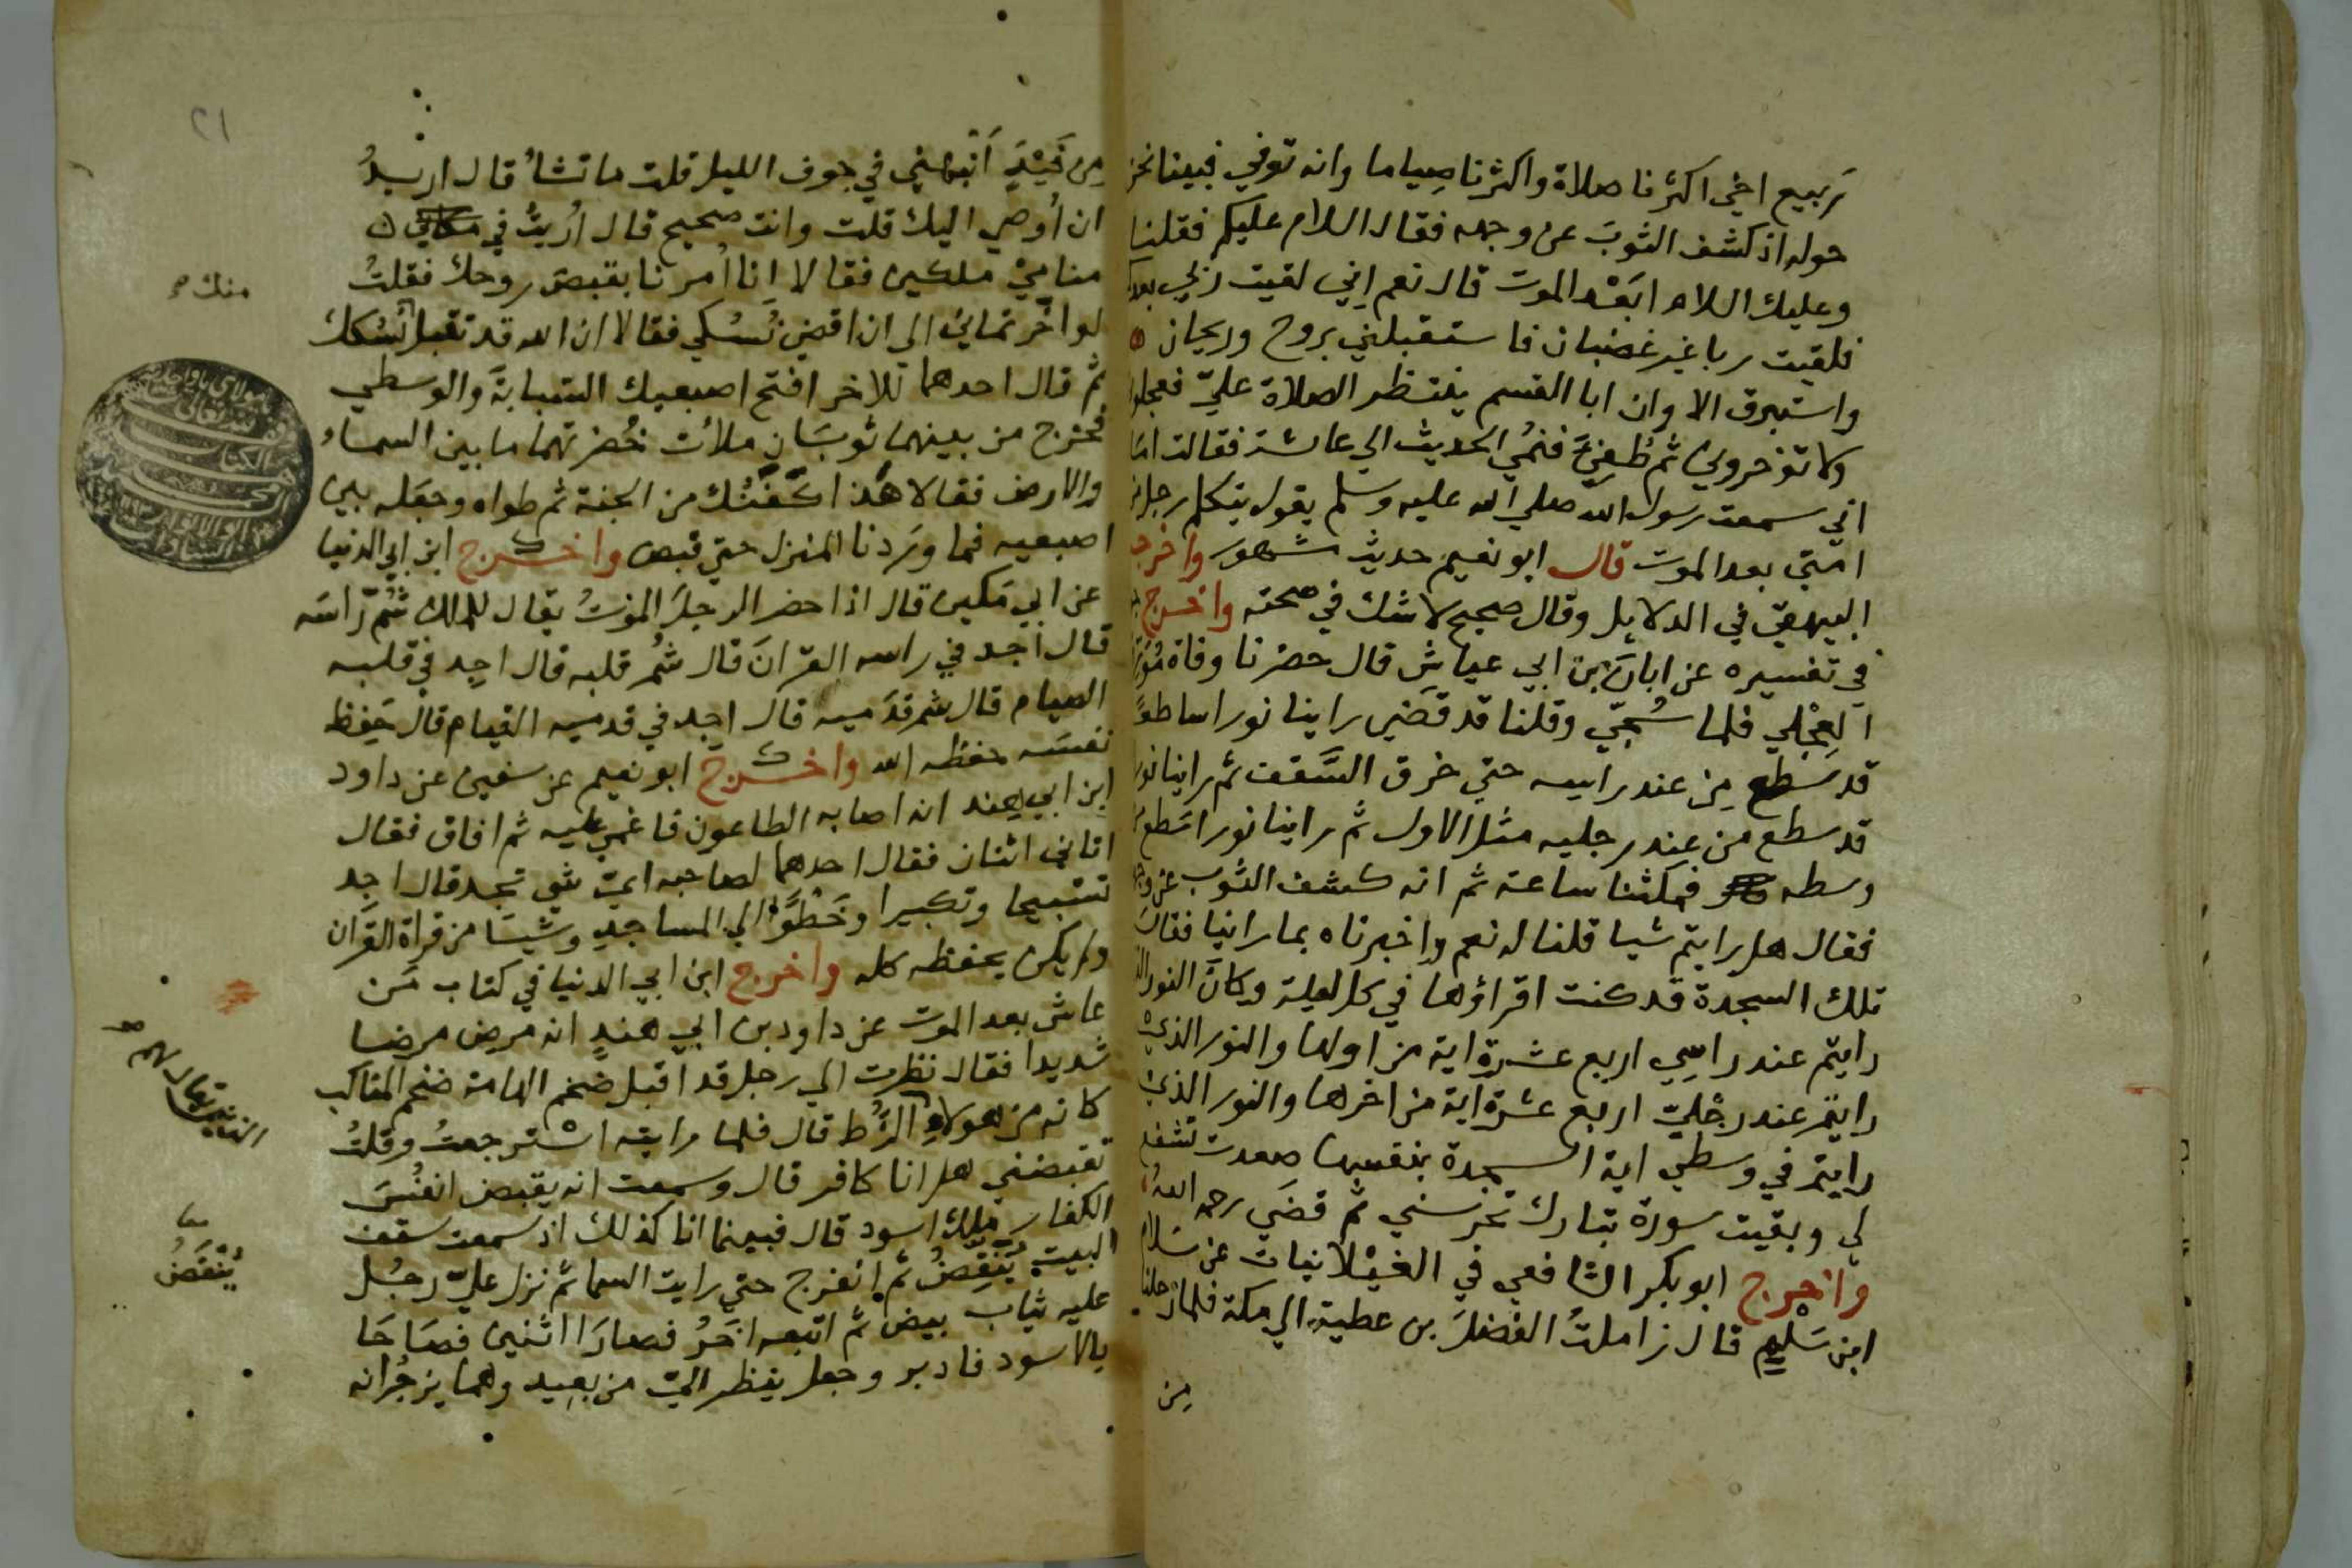 ربيع اخي اكثرنا صلاة واكثرنا صِياما وانه توفي فبينا نحن
حوله اذ كشف الثوبَ عن وجهه فقال السلام عليكم فقلنا
وعليك السلام ابَعْد الموت قال نعم اِني لقيت ربي بعدكم
فلقيت ربا غير غضبان فاستقبلني بروح وريحان
واستبرق الا وان ابا القسم ينتظر الصلاة عليّ فعجلوا
ولا توخروني ثم طُفِئَ فنمُي الحديث الي عائشة فقالت امَا
اني سمعت رسول الله صلي الله عليه وسلم يقول يتكلم رجل من
امتي بعد الموت قال ابو نعيم حديث مشهور واخرجه
البيهقي في الدلايل وقال صحيح لا شك في صحته واخرج
في تفسيره عن ابانَ بن ابي عياش قال حضرنا وفاة مُوَرِّق
العِجْلي فلما سُجّي وقلنا قد قَضَي راينا نورا ساطعًا
قد سَطع مِن عند راسه حتي خرق السَّقف ثم راينا نورا
قد سطع من عند رجليه مثل الاول ثم راينا نورا سَطع من
وسطه فمكثنا ساعة ثم انه كشف الثوب عن وجهه
فقال هل رايتم شيا قلنا له نعم واخبرناه بما راينا فقال
تلك السجدة قد كنت اقراؤها في كل ليلة وكانَ النور الذي
رايتم عند راسِي اربع عشرة اية من اولها والنور الذي
رايتم عند رِجْليّ اربع عشرة اية من اخرها والنور الذي
رايتم في وسطي اية السجدة بنفسها صعدت تشفع
لي وبقيت سورة تبارك تحرسني ثم قضَي رحمه اللهُ
واخرج ابو بكر الشافعي في الغَيْلانيات عن سَلام
ابن سَلْيم قال زاملتُ الفضلَ بن عطية الي مكة فلما رحلنا
مِن
٢١
مِن فَيْدٍ اَنْبَهَني في جوف الليل قلت ما تشأ قال اريدُ
ان اُوصي اليك قلت وانت صحيح قال اُريتُ في
منامِيْ ملكين فقالا انا اُمرنا بقبض روحك فقلتُ
منك
لو اخّرتماني الي ان اقضي نُسُكي فقالا ان الله قد تقبل نُسُكك
ثم قال احدهما للاخر افتح اصبعيك السَّبابةَ والوسطي
فخرج من بينهما ثوبَان ملأت خُضرتهما ما بين السماء
والارض فقالا هَذا كَفَنُك من الجنة ثم طواه وجعَله بين
اصبعيه فما ورَدنا المنزل حتي قبض واخرج ابن ابي الدنيا
عن ابي مَكين قال اذا حضر الرجلَ الموتُ يقال للملك شُمّ رَاسَه
قال اَجد في راسه القرانَ قال شُم قلبه قال اجِد في قلبه
الصيام قال شم قدَميه قال اجد في قدميه القيام قال حَفِظ
نفسَه حفظه الله واخرج ابو نعيم عن سفين عن داود
ابن ابي هند انه اصابه الطاعون فاغمي عليه ثم افاق فقال
اتاني اثنان فقال احدهما لصاحبه ايّ شي تجد قال اجِد
تسبيحا وتكبيرا وخَطْوًا الي المساجدِ وشيئا من قراة القران
ولم يكن يحفظه كله واخرج ابن ابي الدنيا في كتاب مَن
عاش بعد الموت عن داود بن ابي هندٍ انه مرض مرضا
شديدا فقال نظرت الي رجل قد اقبل ضخم الهامة ضخم المناكب
كانه من هولاءِ الذين يقال لهم
الزُّط قال فلما رايته استرجعتُ وقلتُ
تقبضني هل انا كافر قال وسمعت انه يقبض انفُسَ
الكفار ملك اسود قال فبينما انا كذلك اذ سمعت سقف
البيت يَنتقِضُ ثم انفرج حتي رايت السما ثم نزل عليّ رجُل
معا
يُنْقَضُ
عليه ثياب بيض ثم اتبعه اخَرُ فصارَا اثنين فصَاحَا
بالاسود فادبر وجعل ينظر اليّ من بعيد وهما يزجُرانه